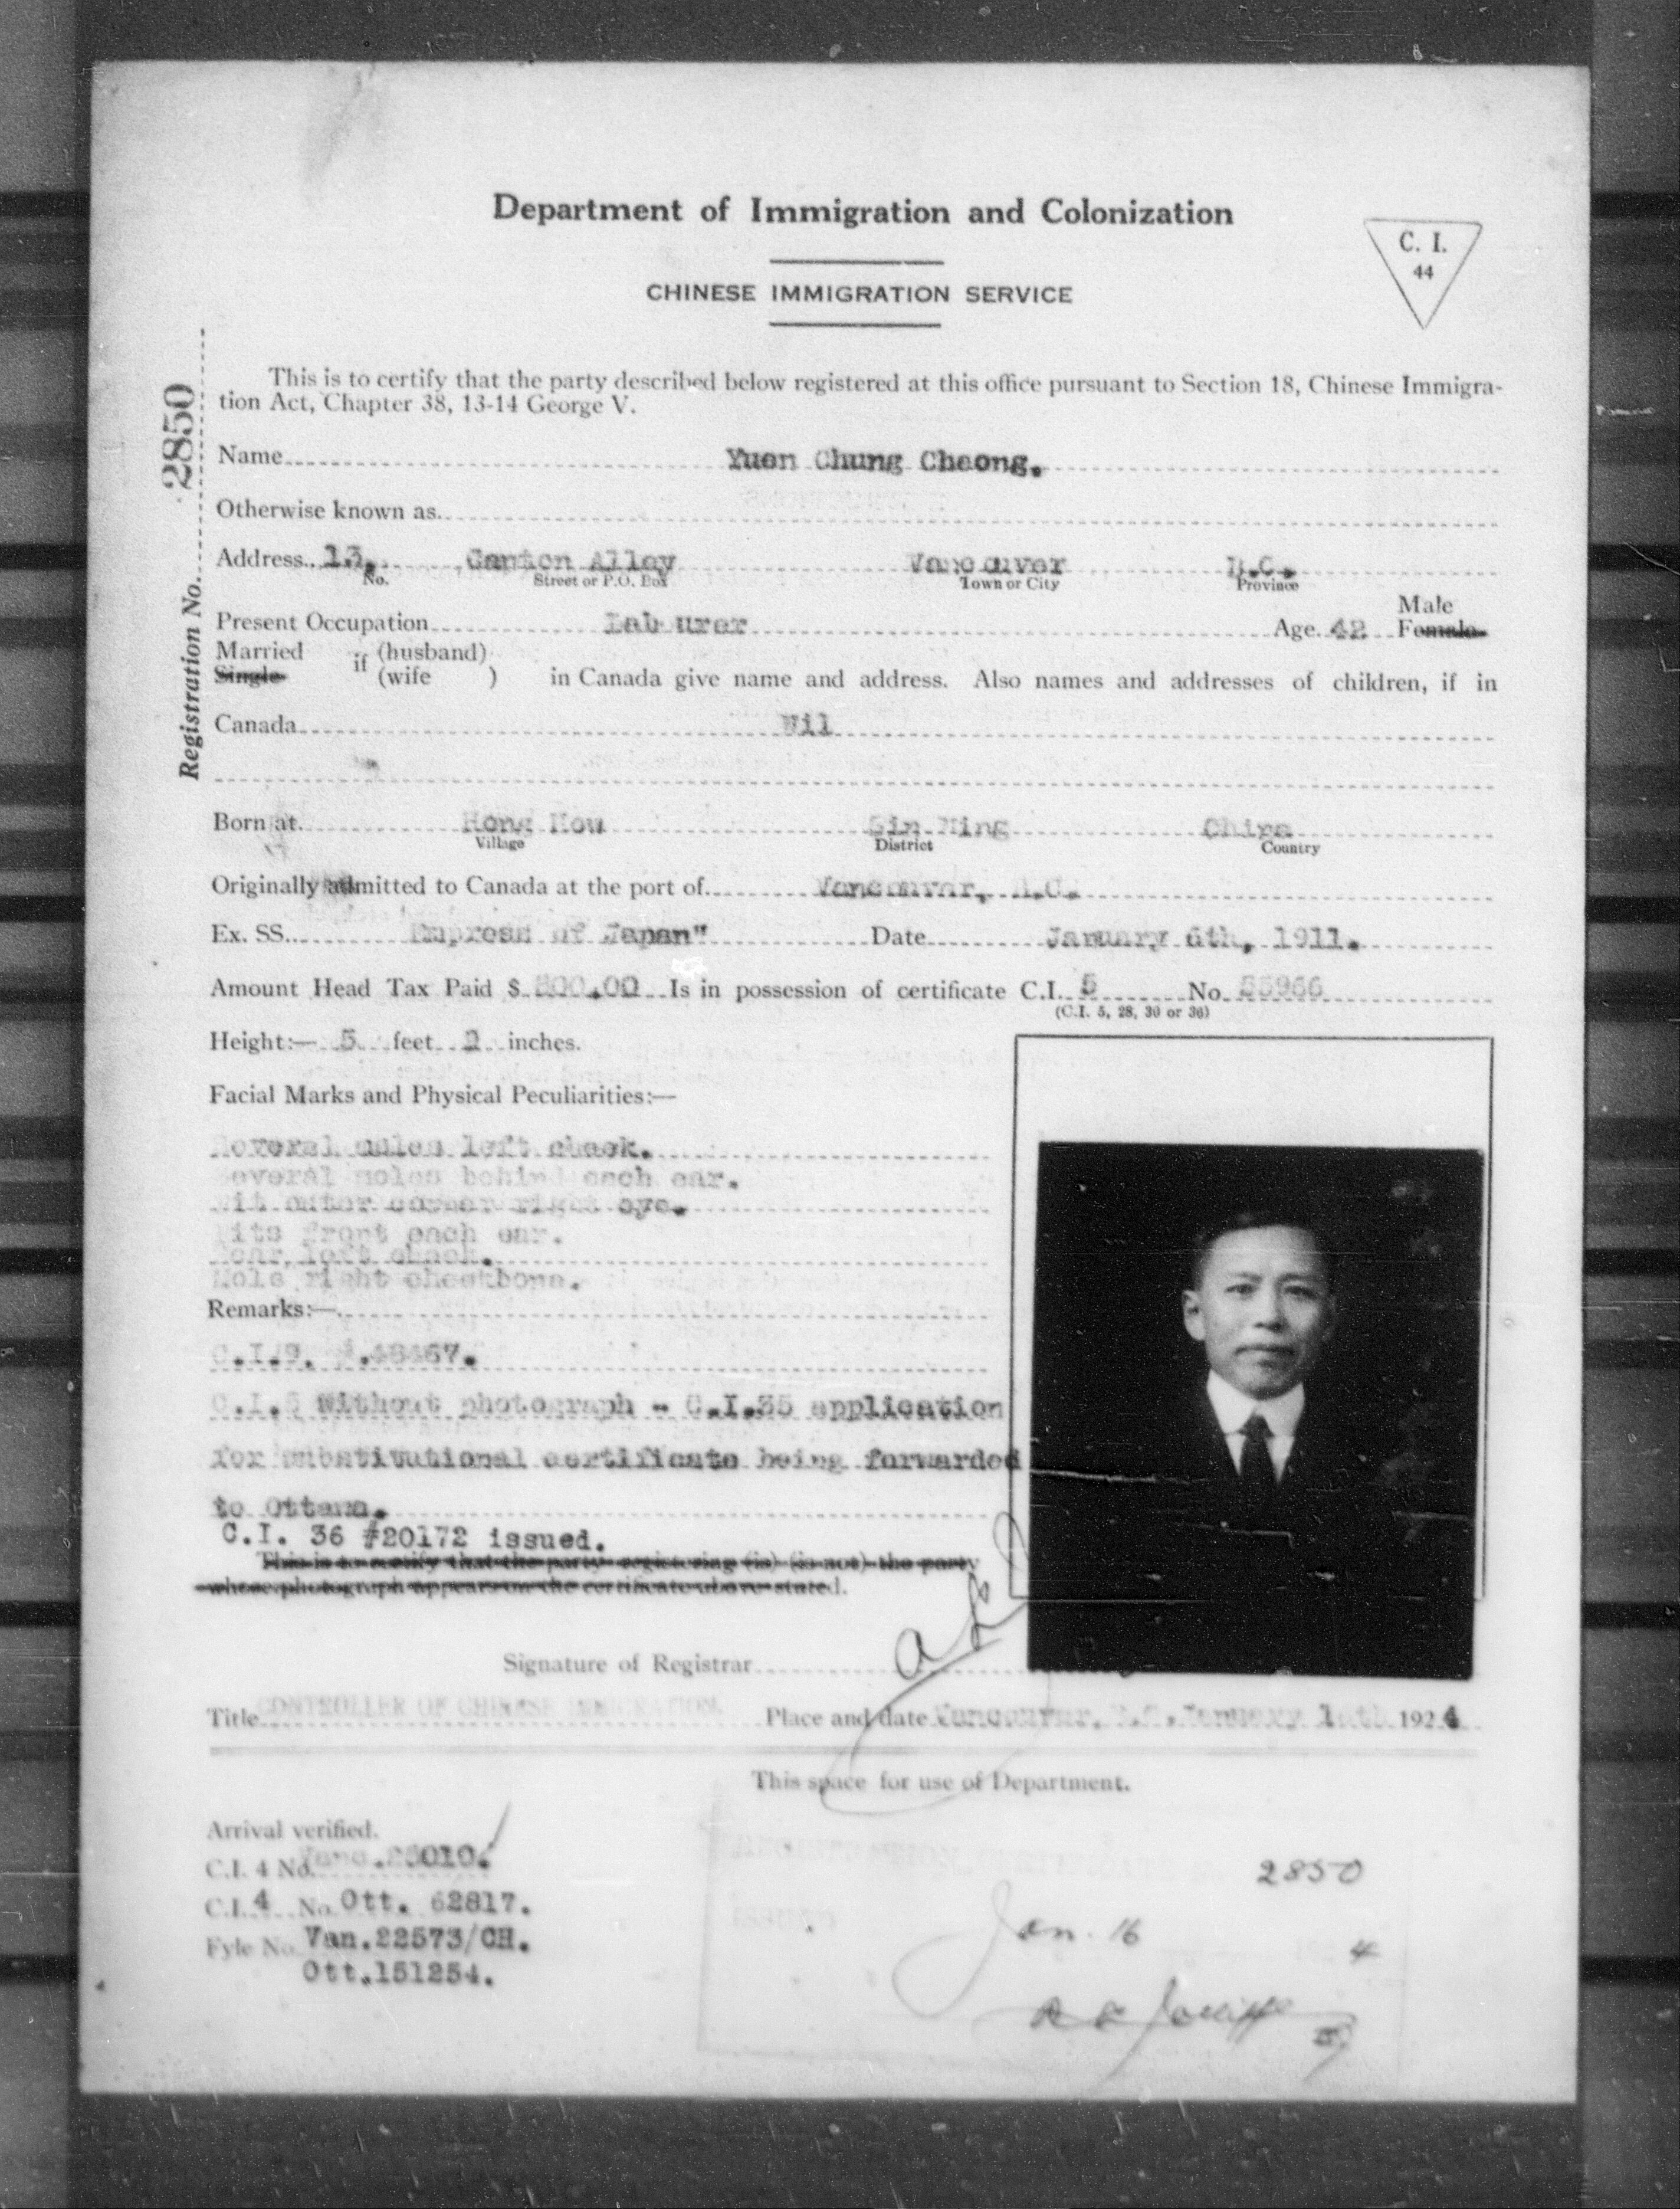 Department of Immigration and Colonization
C. I.
44
CHINESE IMMIGRATION SERVICE
Registration No. 2850
This is to certify that the party described below registered at this office pursuant to Section 18, Chinese Immigra-
tion Act, Chapter 38, 13-14 George V.
Name Yuen Chung Cheong.
Otherwise known as
Address 13, Canton Alley Vancouver B.C.
No. Street or P.O. Box Town or City Province
Male
Present Occupation Lab urer Age 42 Female
Married if (husband)
Single (wife ) in Canada give name and address. Also names and addresses of children, if in
Canada Nil
Born at Hong How Sin Ning China
Village District Country
Originally admitted to Canada at the port of Vancouver, B.C.
Ex. SS. Empress of Japan" Date January 6th, 1911.
Amount Head Tax Paid $ 500.00 Is in possession of certificate C.I. 5 No. 55966
(C.I. 5, 28, 30 or 36)
Height:— 5 feet 2 inches.
Facial Marks and Physical Peculiarities:—
Several moles left cheek.
Several moles behind each ear.
Pit outer corner right eye.
Pits front each ear.
Scar left cheek.
Mole right cheekbone.
Remarks:—
C.I.9. 48467.
C.I.5 Without photograph - C.I.35 application
for substitutional certificate being forwarded
to Ottawa.
C.I. 36 #20172 issued.
This is to certify that the party registering (is) (is not) the party
whose photograph appears on the certificate above stated.
Signature of Registrar
Title CONTROLLER OF CHINESE IMMIGRATION. Place and date Vancouver, B.C., January 192 4
This space for use of Department.
Arrival verified.
C.I. 4 No. Vanc. 010.
C.I. 4 No. Ott. 62817.
Fyle No. Van.22573/CH.
Ott.151254.
2850
Jan. 16 4